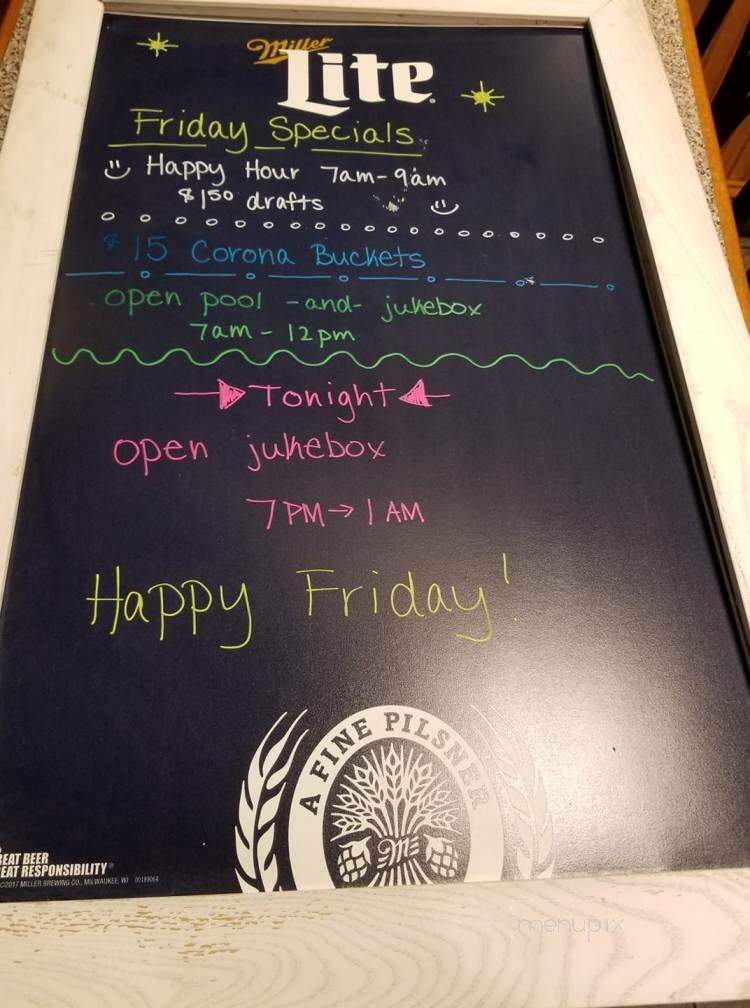 Miller
Lite
Friday Specials
Happy Hour 7am-9am
$1.50 drafts
$15 Corona Buckets
open pool -and- jukebox
7am - 12pm
Tonight
open jukebox
7PM → 1AM
Happy Friday!
A FINE PILSNER
REAT BEER
EAT RESPONSIBILITY®
©2017 MILLER BREWING CO., MILWAUKEE, WI
menupix